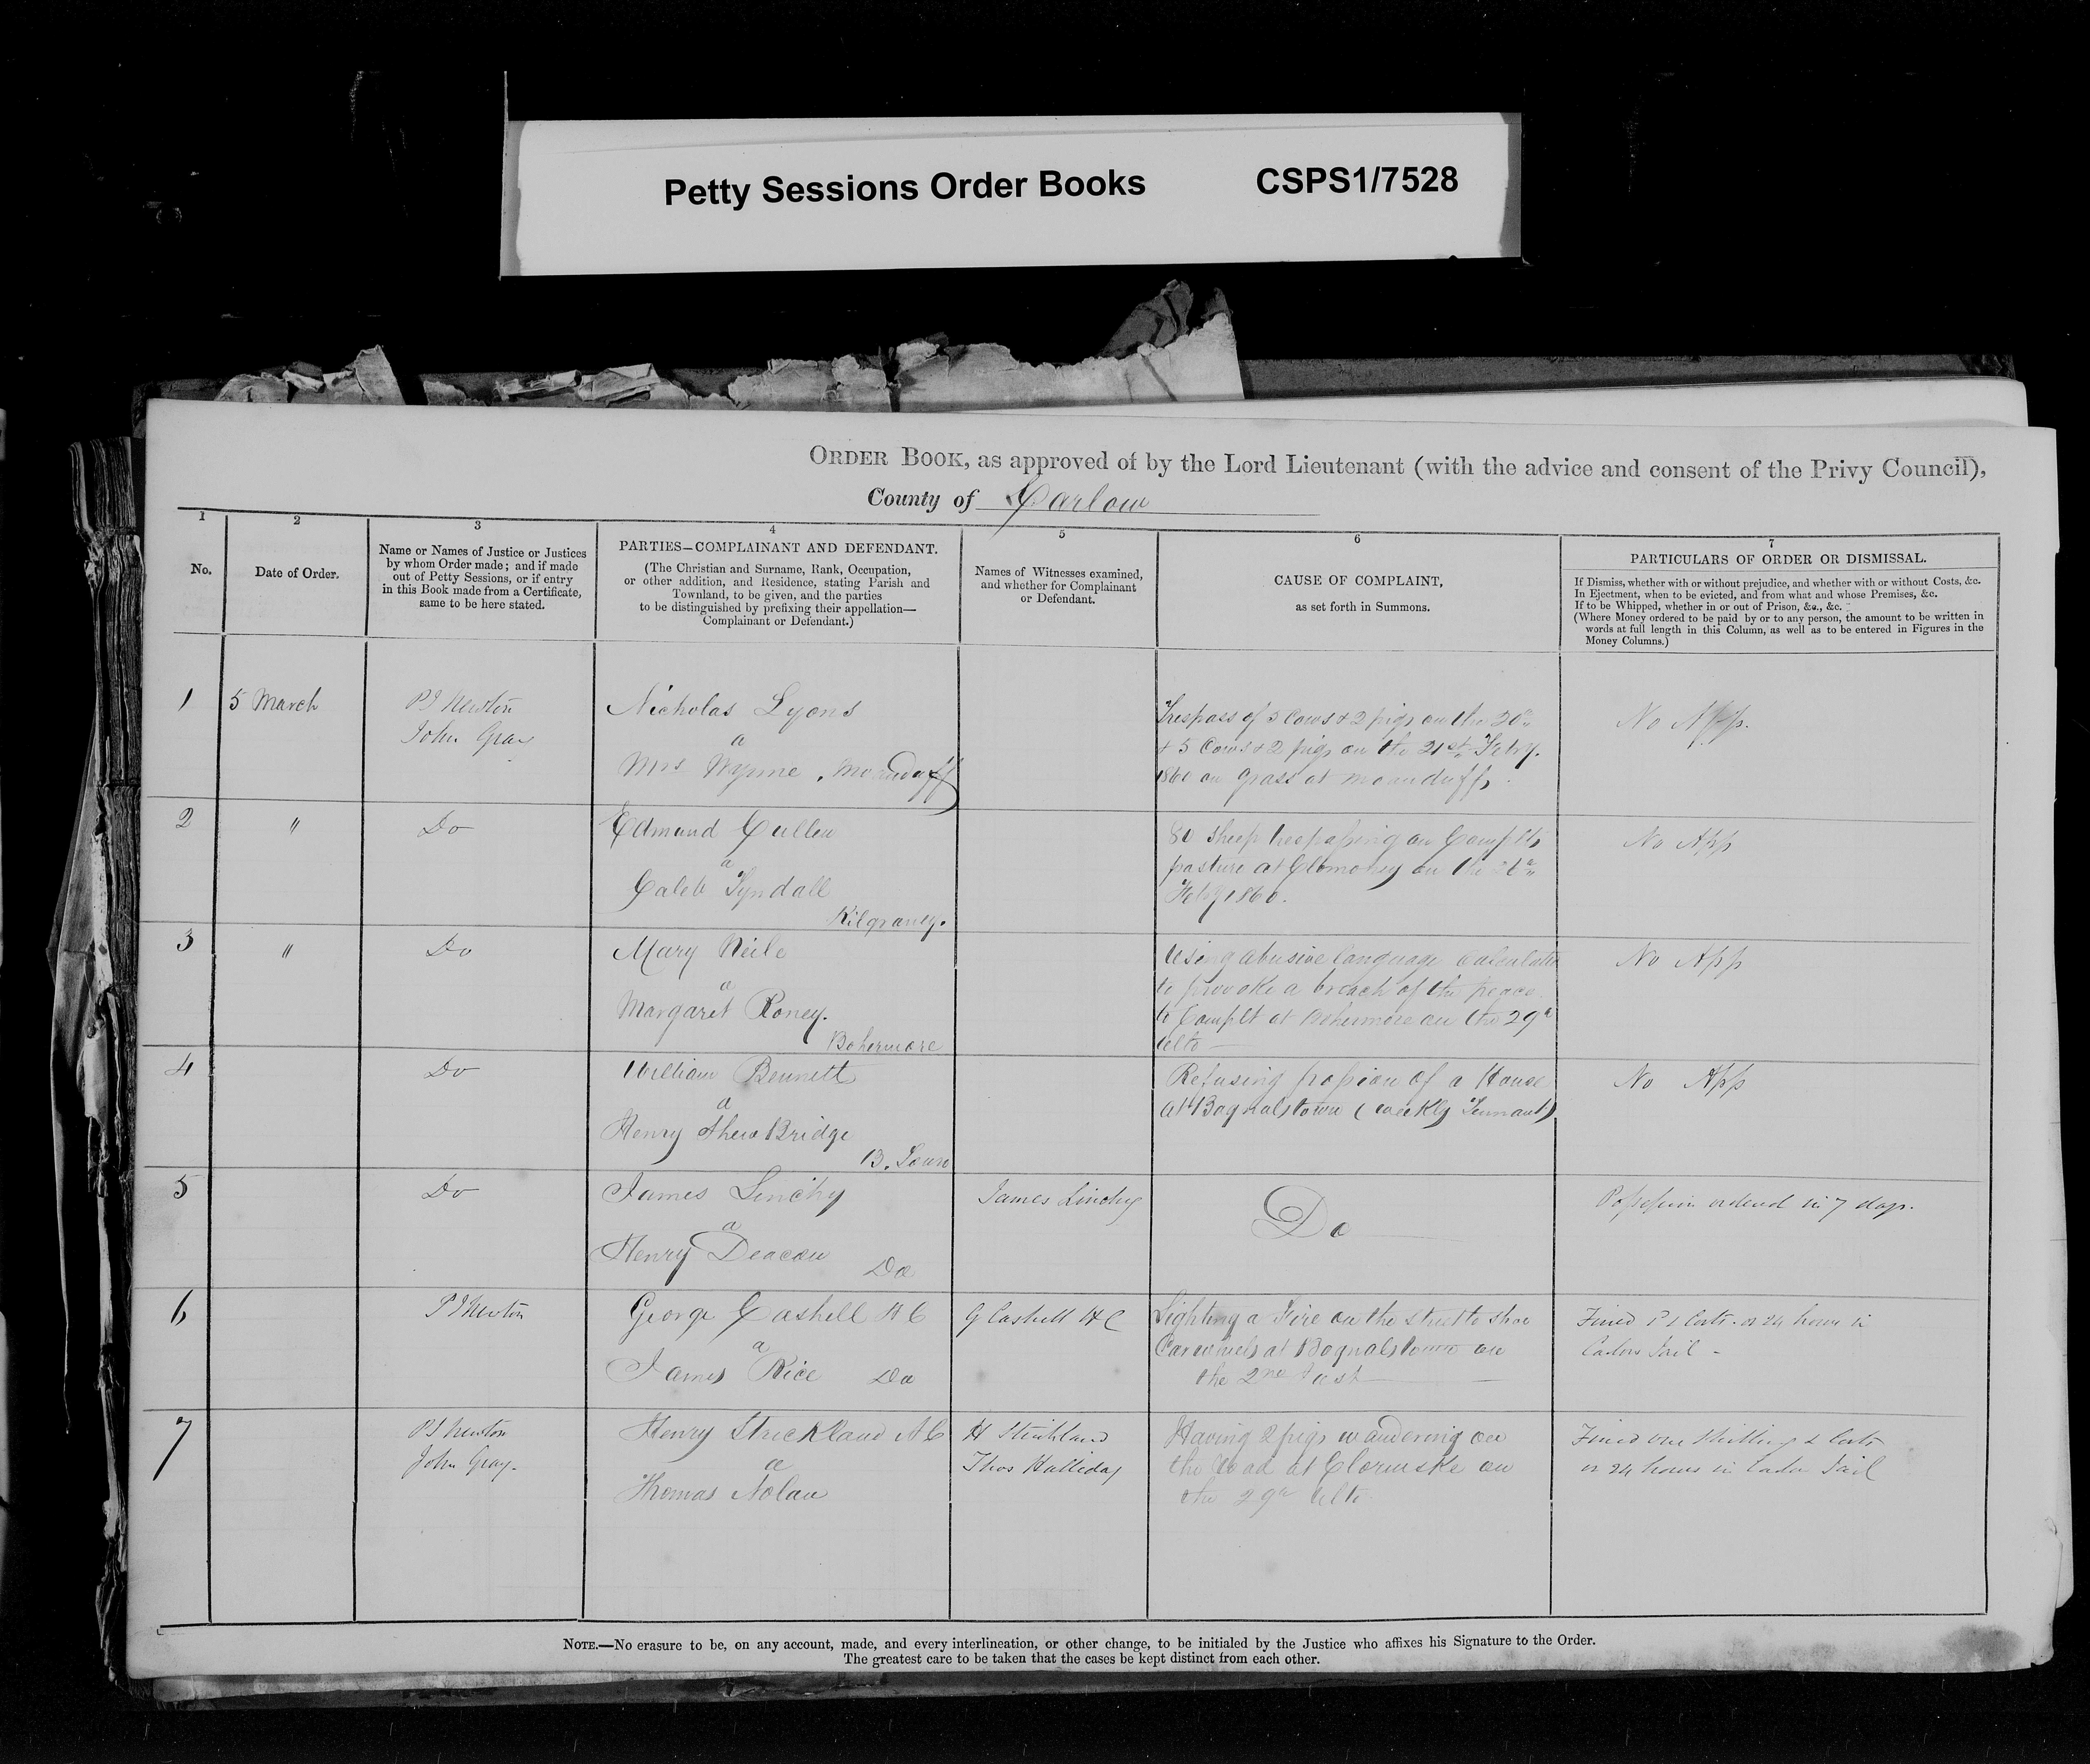 Petty Sessions Order Books CSPS1/7528
ORDER BOOK, as approved of by the Lord Lieutenant (with the advice and consent of the Privy Council),
County of Carlow
1 2 3 4 5 6 7
No.
Date of Order.
Name or Names of Justice or Justices
by whom Order made; and if made
out of Petty Sessions, or if entry
in this Book made from a Certificate,
same to be here stated.
PARTIES—COMPLAINANT AND DEFENDANT.
(The Christian and Surname, Rank, Occupation,
or other addition, and Residence, stating Parish and
Townland, to be given, and the parties
to be distinguished by prefixing their appellation—
Complainant or Defendant.)
Names of Witnesses examined,
and whether for Complainant
or Defendant.
CAUSE OF COMPLAINT,
as set forth in Summons.
PARTICULARS OF ORDER OR DISMISSAL.
If Dismiss, whether with or without prejudice, and whether with or without Costs, &c.
In Ejectment, when to be evicted, and from what and whose Premises, &c.
If to be Whipped, whether in or out of Prison, &c., &c.
(Where Money ordered to be paid by or to any person, the amount to be written in
words at full length in this Column, as well as to be entered in Figures in the
Money Columns.)
1
5 March
Newton
John Gray
Nicholas Lyons
a
Mrs Wynne,
Trespass of 5 Cows & 2 pigs on the 20th
& 5 Cows & 2 pigs on the 21st Feby.
1860 on grass at
No App.
2
"
Do
Edmund Cullen
a
Caleb Tyndall
Kilgraney.
80 sheep trespassing on Complts
pasture at on the
Feby 1860.
No App
3
"
Do
Mary Neile
a
Margaret Roney.
Bohermore
Using abusive language calculated
to provoke a breach of the peace
to Complt at Bohermore on the 29th
Ulto
No App
4
Do
William Bennett
a
Henry Bridge
B. Town
Refusing possion of a House
at Bagnalstown (weekly Tennant)
No App
5
Do
James Linchy
a
Henry Deacon Do
James Linchy
Do
Possession ordered in 7 days.
6
Newton
George Cashell H C
a
James Rice Do
G Cashell H C
Lighting a Fire on the street to shoe
Carwheels at Bagnalstown on
the 2nd Inst
Fined & Costs or 24 hours in
Jail
7
Newton
John Gray.
Henry Strickland A C
a
Thomas Nolan
H Strickland
Thos Halliday
Having 2 pigs wandering on
the Road at Clormuske on
the 29th Ulto
Fined one shilling & Costs
or 24 hours in Jail
NOTE.—No erasure to be, on any account, made, and every interlineation, or other change, to be initialed by the Justice who affixes his Signature to the Order.
The greatest care to be taken that the cases be kept distinct from each other.